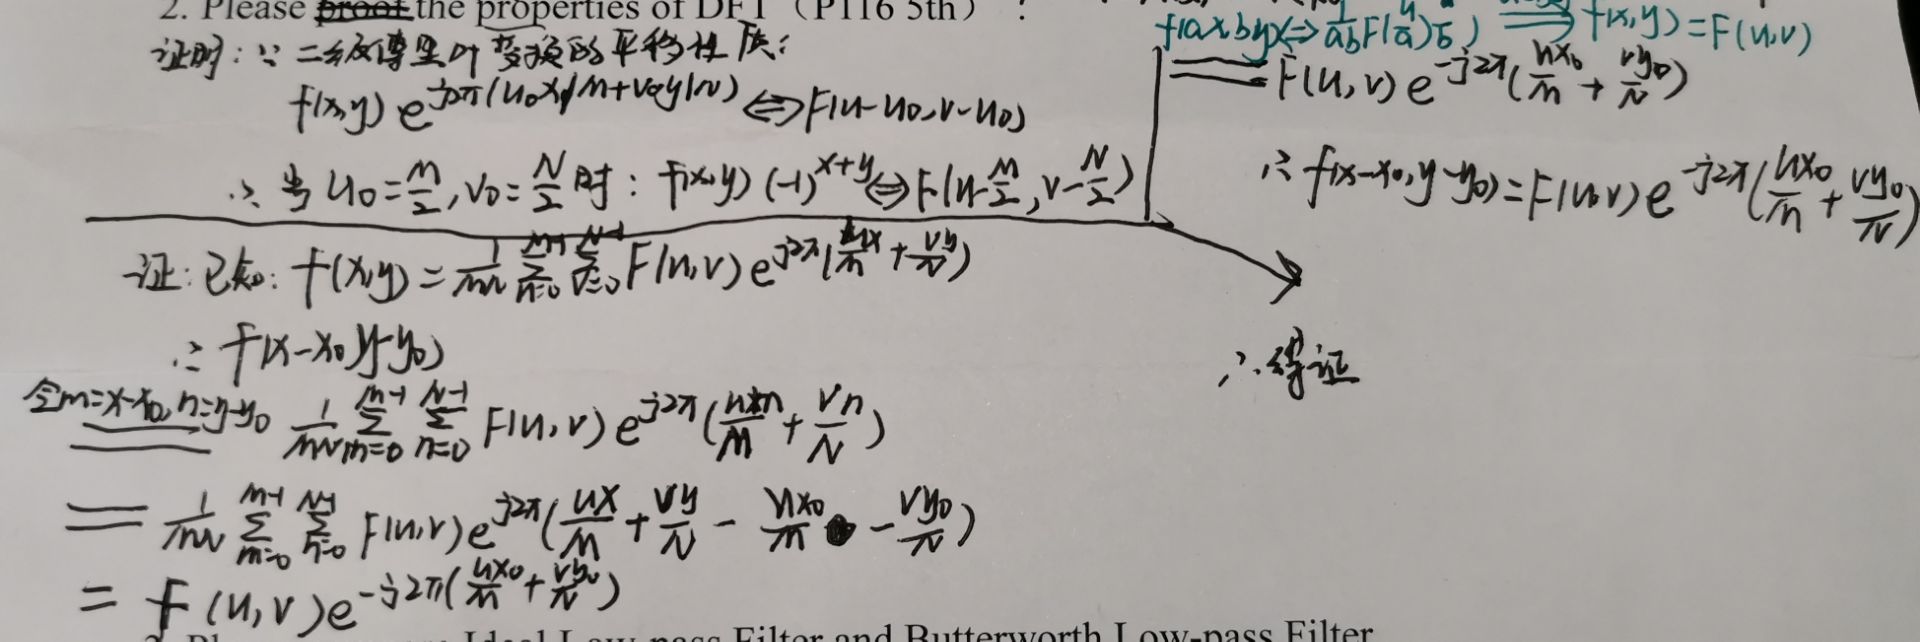 2. Please proof the properties of DFT (P116 5th) :
证明: ∵ 二级傅里叶变换的平移性质:
f(x,y) e^{j2π(u0x/M+v0y/N)} ⇔ F(u-u0,v-u0)
∴ 当 u0=M/2, v0=N/2 时: f(x,y) (-1)^{x+y} ⇔ F(u-M/2, v-N/2)
证: 已知: f(x,y) = 1/MN Σ_{u=0}^{M-1} Σ_{v=0}^{N-1} F(u,v) e^{j2π(ux/M + vy/N)}
∴ f(x-x0, y-y0)
令m=x-x0, n=y-y0 1/MN Σ_{m=0}^{M-1} Σ_{n=0}^{N-1} F(u,v) e^{j2π(um/M + vn/N)}
= 1/MN Σ_{m=0}^{M-1} Σ_{n=0}^{N-1} F(u,v) e^{j2π(ux/M + vy/N - ux0/M - vy0/N)}
= F(u,v) e^{-j2π(ux0/M + vy0/N)}
f(ax,by) ⇔ 1/ab F(u/a, v/b) ⟹ f(x,y) = F(u,v)
= F(u,v) e^{-j2π(ux0/M + vy0/N)}
∴ f(x-x0, y-y0) = F(u,v) e^{-j2π(ux0/M + vy0/N)}
∴ 得证
Ideal Low-pass Filter and Butterworth Low-pass Filter